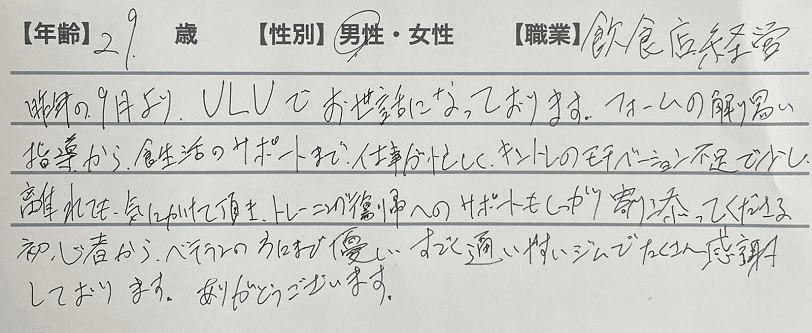 【年齢】29 歳 【性別】男性・女性 【職業】飲食店経営
昨年の9月より、ULUでお世話になっております。フォームの解り易い
指導から、食生活のサポートまで、仕事が忙しく、キントレのモチベーション不足で少し
離れても、気にかけて頂き、トレーニング復帰へのサポートもしっかり寄り添ってくださる
初心者から、ベテランの方にまで優しい、すごく通いやすいジムでたくさん感謝
しております。ありがとうございます。